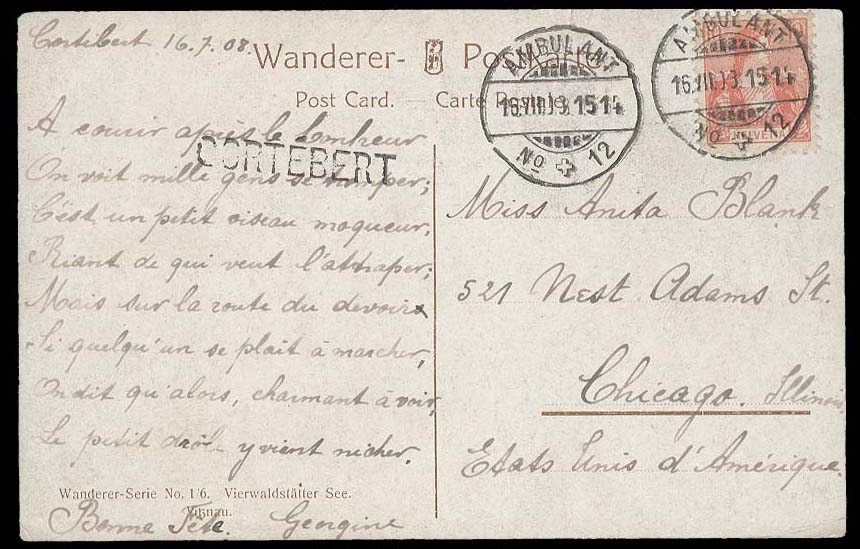 Cortébert 16.7.08.
Wanderer- Postkarte
Post Card. — Carte Postale
A courir après le bonheur
CORTÉBERT
On voit mille gens se tromper;
C'est un petit oiseau moqueur,
Riant de qui veut l'attraper;
Mais sur la route du devoir
Si quelqu'un se plait à marcher,
On dit qu'alors, charmant à voir,
Le petit drôl y vient nicher.
Wanderer-Serie No. 1/6. Vierwaldstätter See.
Vitznau.
Bonne Fête. Georgine
AMBULANT
16.VII.08.15 14
No 12
AMBULANT
16.VII.08.15 14
No 12
HELVETIA
Miss Anita Blank
521 West Adams St.
Chicago. Illinois
Etats Unis d'Amérique.